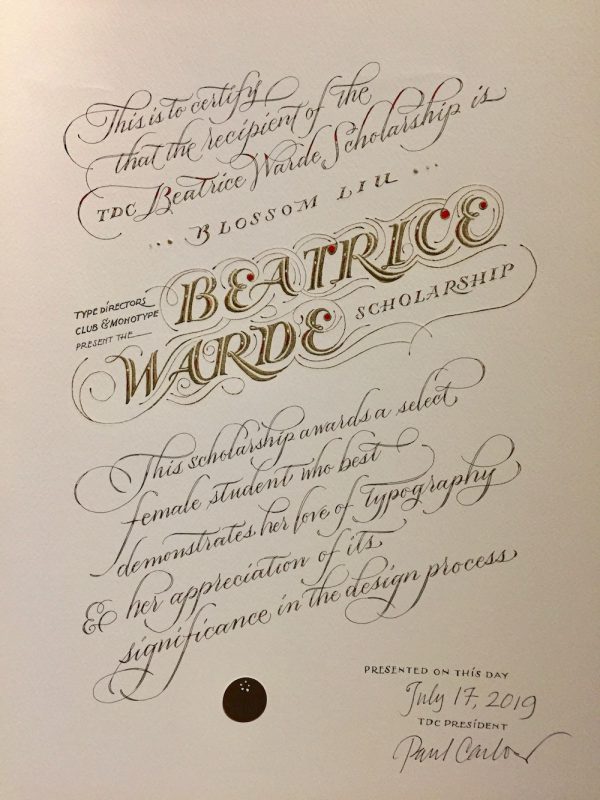 This is to certify
that the recipient of the
TDC Beatrice Warde Scholarship is
... BLOSSOM LIU ...
TYPE DIRECTORS
CLUB & MONOTYPE
PRESENT THE
BEATRICE
WARDE SCHOLARSHIP
This scholarship awards a select
female student who best
demonstrates her love of typography
& her appreciation of its
significance in the design process
PRESENTED ON THIS DAY
July 17, 2019
TDC PRESIDENT
Paul Carlos